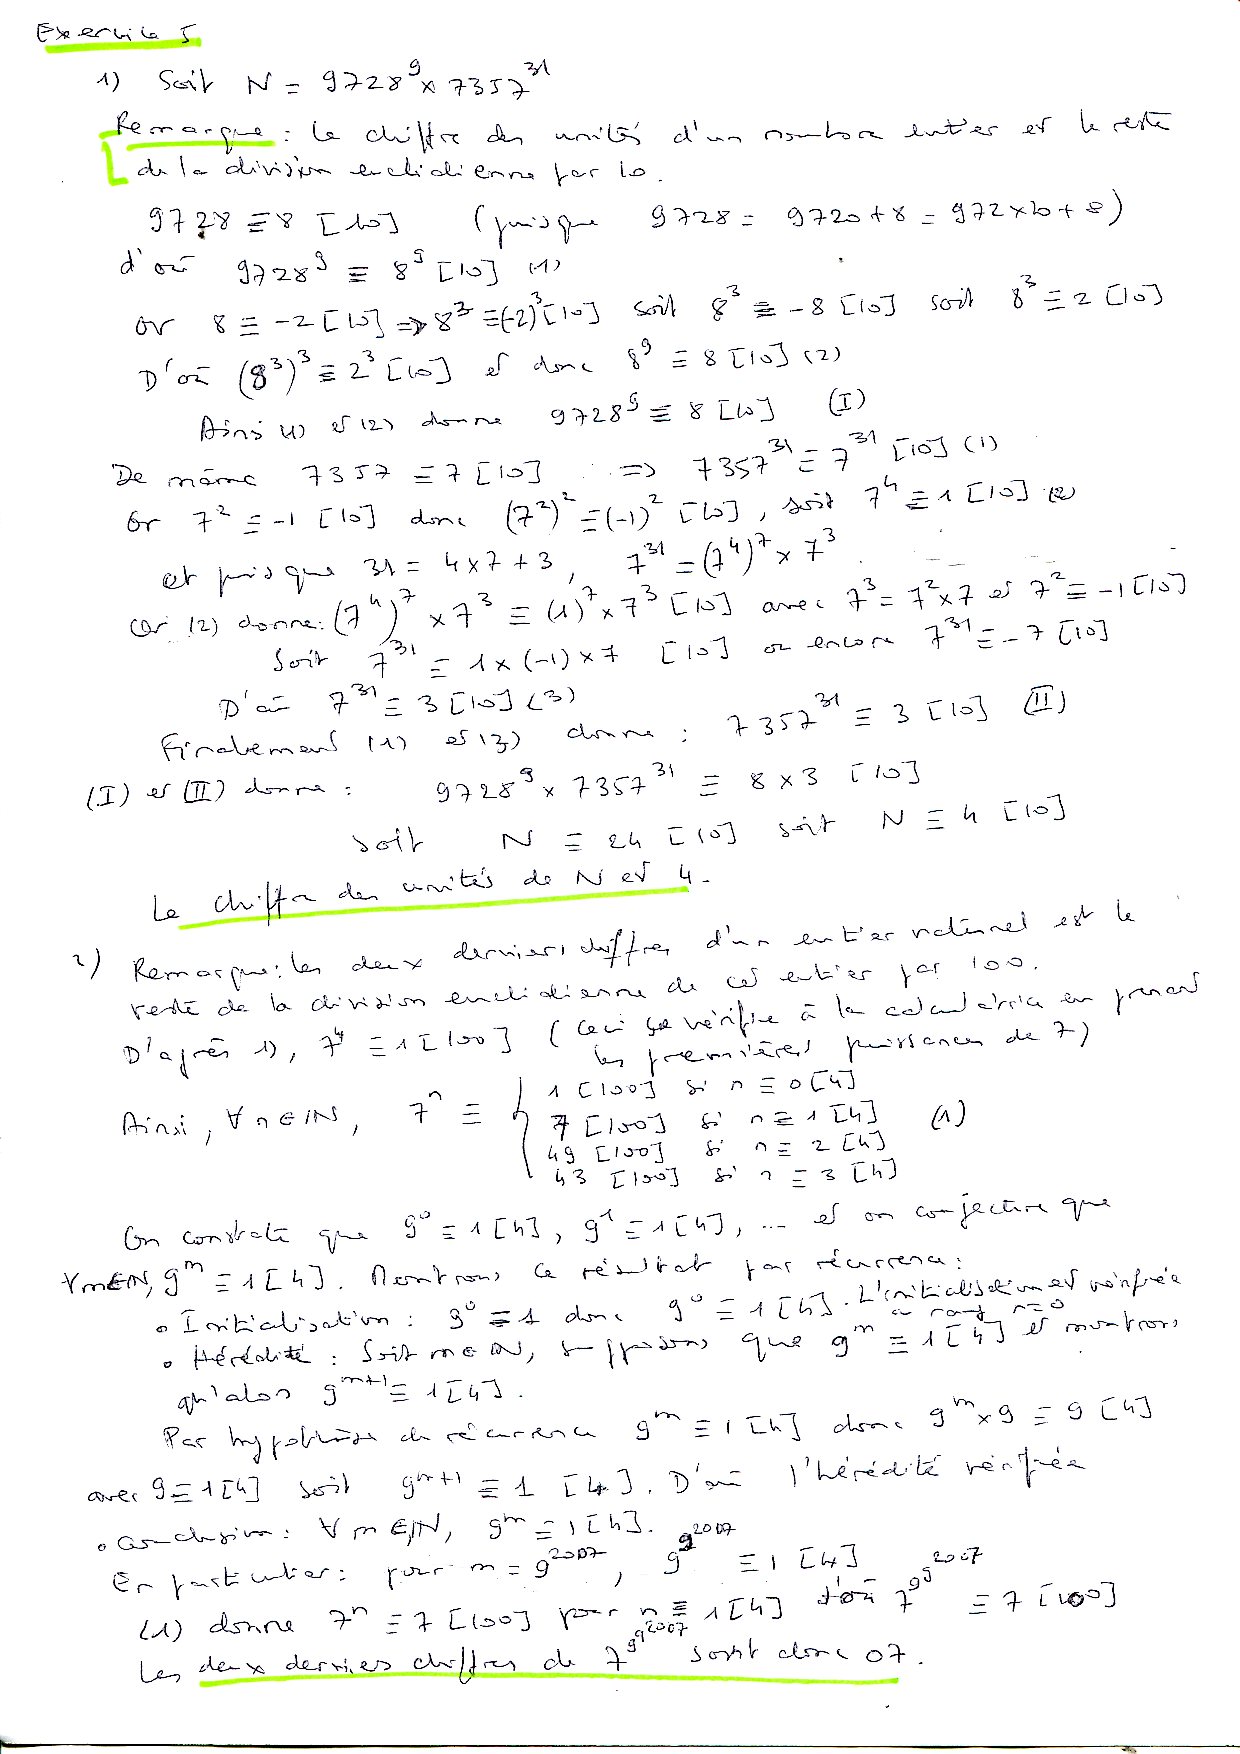 Exercice 5
1) Soit N = 9728⁹ × 7357³¹
Remarque : Le chiffre des unités d'un nombre entier est le reste
de la division euclidienne par 10.
9728 ≡ 8 [10] (puisque 9728 = 9720 + 8 = 972 × 10 + 8)
d'où 9728⁹ ≡ 8⁹ [10] (1)
or 8 ≡ -2 [10] => 8³ ≡ (-2)³ [10] soit 8³ ≡ -8 [10] soit 8³ ≡ 2 [10]
D'où (8³)³ ≡ 2³ [10] et donc 8⁹ ≡ 8 [10] (2)
Ainsi (1) et (2) donne 9728⁹ ≡ 8 [10] (I)
De même 7357 ≡ 7 [10] => 7357³¹ ≡ 7³¹ [10] (1)
Or 7² ≡ -1 [10] donc (7²)² ≡ (-1)² [10], soit 7⁴ ≡ 1 [10] (2)
et puisque 31 = 4 × 7 + 3, 7³¹ = (7⁴)⁷ × 7³
Or (2) donne : (7⁴)⁷ × 7³ ≡ (1)⁷ × 7³ [10] avec 7³ = 7² × 7 et 7² ≡ -1 [10]
Soit 7³¹ ≡ 1 × (-1) × 7 [10] ou encore 7³¹ ≡ -7 [10]
D'où 7³¹ ≡ 3 [10] (3)
Finalement (1) et (3) donne : 7357³¹ ≡ 3 [10] (II)
(I) et (II) donne : 9728⁹ × 7357³¹ ≡ 8 × 3 [10]
soit N ≡ 24 [10] soit N ≡ 4 [10]
Le chiffre des unités de N est 4.
2) Remarque : les deux derniers chiffres d'un entier naturel est le
reste de la division euclidienne de cet entier par 100.
D'après 1), 7⁴ ≡ 1 [100] (Ceci se vérifie à la calculatrice en prenant
les premières puissances de 7)
1 [100] si n ≡ 0 [4]
Ainsi, ∀ n ∈ ℕ, 7ⁿ ≡ { 7 [100] si n ≡ 1 [4] (1)
49 [100] si n ≡ 2 [4]
43 [100] si n ≡ 3 [4]
On constate que 9⁰ ≡ 1 [4], 9¹ ≡ 1 [4], ... et on conjecture que
∀ m ∈ ℕ, 9ᵐ ≡ 1 [4]. Montrons ce résultat par récurrence :
• Initialisation : 9⁰ = 1 donc 9⁰ ≡ 1 [4]. L'initialisation est vérifiée
au rang n=0
• Hérédité : Soit m ∈ ℕ, supposons que 9ᵐ ≡ 1 [4] et montrons
qu'alors 9ᵐ⁺¹ ≡ 1 [4].
Par hypothèse de récurrence 9ᵐ ≡ 1 [4] donc 9ᵐ × 9 ≡ 9 [4]
avec 9 ≡ 1 [4] soit 9ᵐ⁺¹ ≡ 1 [4]. D'où l'hérédité vérifiée
• Conclusion : ∀ m ∈ ℕ, 9ᵐ ≡ 1 [4].
En particulier : pour m = 9^2007, 9^9^2007 ≡ 1 [4]
(1) donne 7ⁿ ≡ 7 [100] pour n ≡ 1 [4] d'où 7^9^9^2007 ≡ 7 [100]
Les deux derniers chiffres de 7^9^9^2007 sont donc 07.